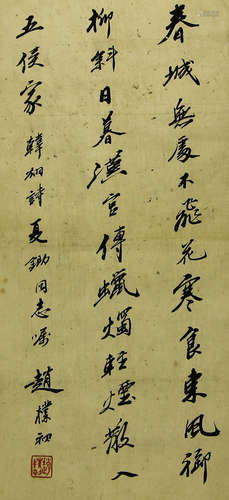 春城無處不飛花寒食東風御
柳斜日暮漢宮傳蠟燭輕煙散入
五侯家 韓翃詩 夏鋤同志屬 趙樸初